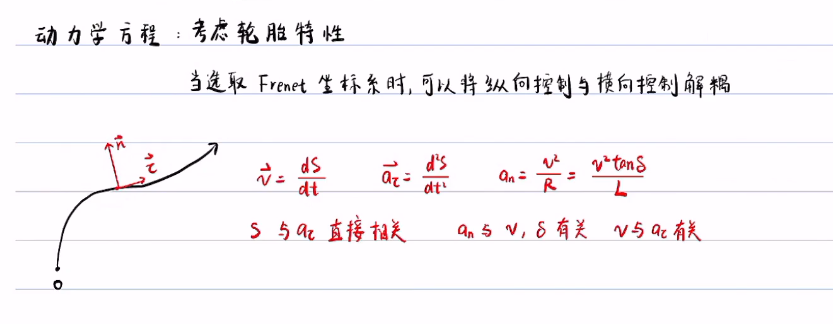 动力学方程：考虑轮胎特性
当选取 Frenet 坐标系时,可以将纵向控制与横向控制解耦
n⃗ τ⃗
v⃗ = dS/dt a⃗τ = d²S/dt² an = v²/R = v²tanδ/L
S 与 aτ 直接相关 an 与 v, δ 有关 v 与 aτ 有关
O